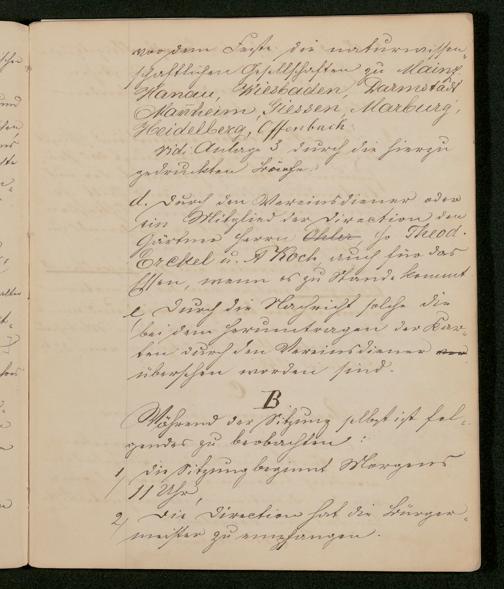 vor dem Feste die naturwissen-
schaftlichen Gesellschaften zu Mainz
Hanau, Wiesbaden, Darmstadt
Mannheim, Giessen, Marburg,
Heidelberg, Offenbach
vid. Anlage 3. durch die hierzu
gedruckten Briefe.
d. Durch den Vereinsdiener oder
ein Mitglied der Direction den
Herrn Theod.
Erckel u. A Koch auch für das
Essen, wenn es zu Stande kommt
e, Durch die Nachricht solche die
bei dem Herumtragen der Kar-
ten durch den Vereinsdiener
übersehen worden sind.
B
Während der Sitzung selbst ist fol-
gendes zu beobachten:
1, Die Sitzung beginnt Morgens
11 Uhr,
2, Die Direction hat die Bürger-
meister zu empfangen.